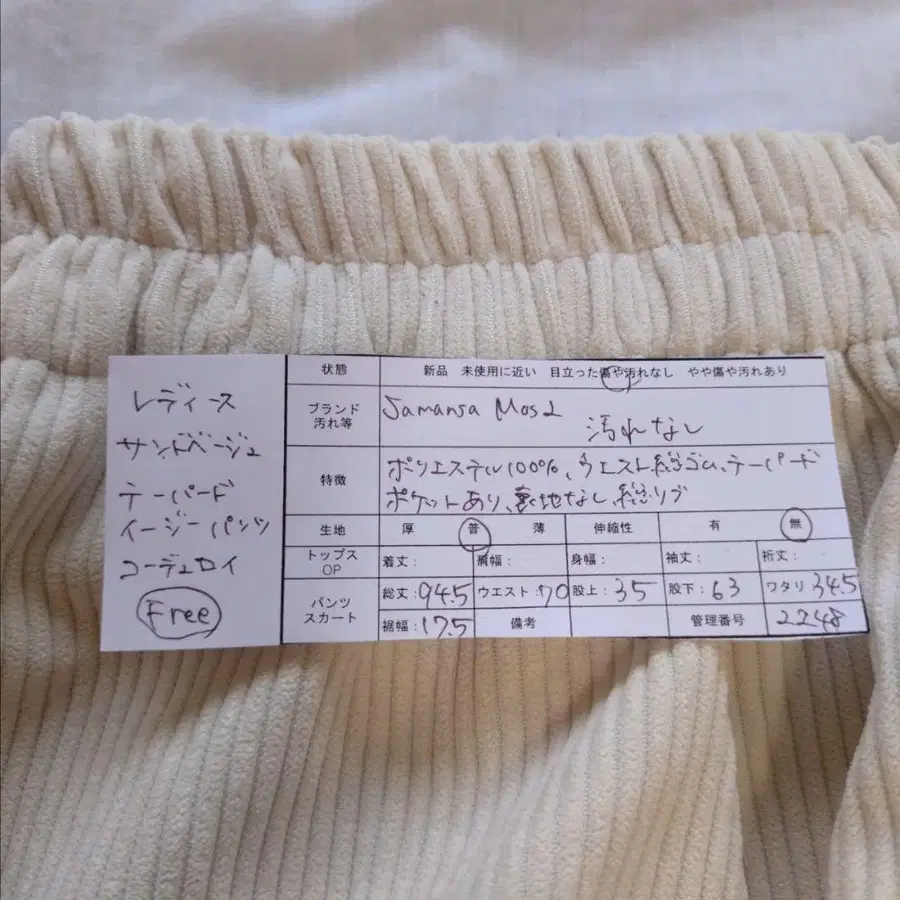 レディース
サンドベージュ
テーパード
イージーパンツ
コーデュロイ
Free
状態 新品 未使用に近い 目立った傷や汚れなし やや傷や汚れあり
ブランド 汚れ等 Samansa Mos2
汚れなし
特徴 ポリエステル100%、ウエスト総ゴム、テーパード
ポケットあり、裏地なし、総リブ
生地 厚 普 薄 伸縮性 有 無
トップス OP 着丈: 肩幅: 身幅: 袖丈: 裄丈:
パンツ スカート 総丈:94.5 ウエスト:70 股上:35 股下:63 ワタリ34.5
裾幅:17.5 備考 管理番号 2248